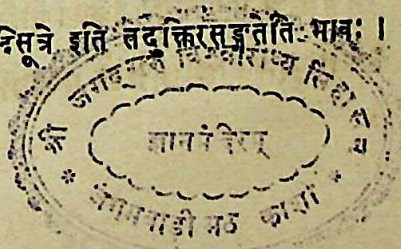 दिसूत्रे इति तदुक्तिरसङ्गतेति भावः ।
श्री जगद्गुरु विश्वाराध्य सिंहासन
ज्ञानमंदिरम्
* जंगमवाडी मठ काशी *